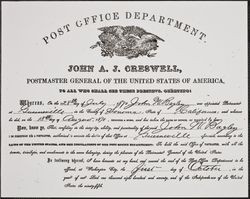 POST OFFICE DEPARTMENT.
JOHN A. J. CRESWELL,
POSTMASTER GENERAL OF THE UNITED STATES OF AMERICA,
TO ALL WHO SHALL SEE THESE PRESENTS, GREETING:
Whereas, on the 28th day of July 1870 John W. was appointed Postmaster
at in the County of Sonoma State of California
and whereas he did, on the 15th day of August, 1870, execute a Bond, and has taken the Oath of Office, as required by law
Now, know ye, That confiding in the integrity, ability, and punctuality of the said John W.
I DO COMMISSION him a Postmaster, authorized to execute the duties of that Office at
LAWS OF THE UNITED STATES, AND THE REGULATIONS OF THE POST OFFICE DEPARTMENT: To hold the said Office of Postmaster, with all the
powers, privileges, and emoluments to the same belonging, during the pleasure of the Postmaster General of the United States.
In testimony whereof, I have hereunto set my hand, and caused the seal of the Post Office Department to be
affixed, at Washington City, the first day of October in the
year of our Lord one thousand eight hundred and seventy, and of the Independence of the United
States the ninety-fifth.